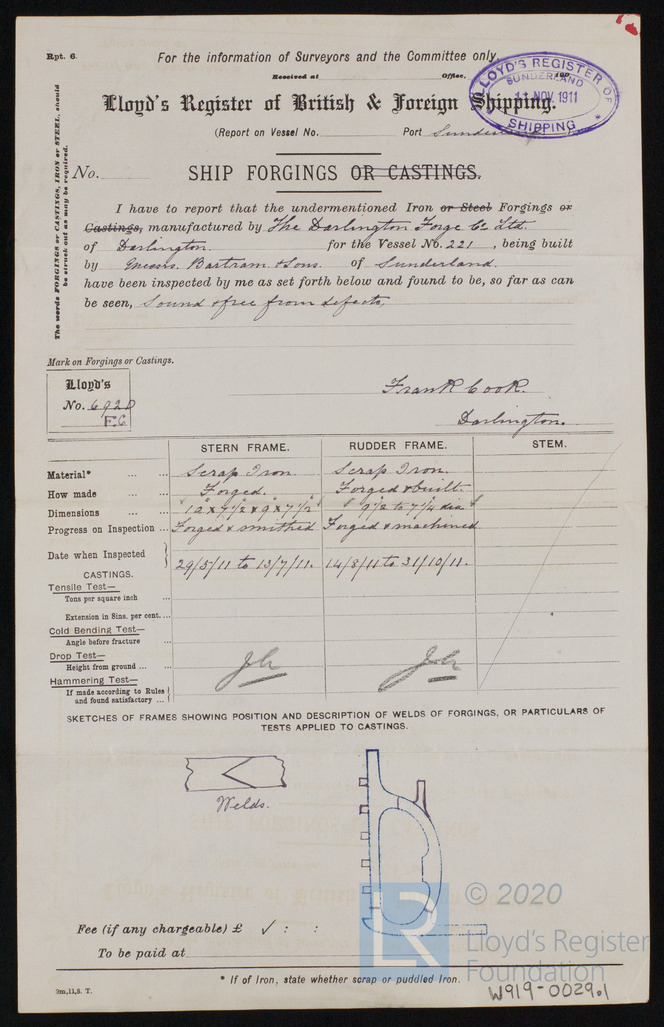 Rpt. 6.
For the information of Surveyors and the Committee only.
Received at Office, 190
LLOYD'S REGISTER OF SHIPPING
SUNDERLAND
11 NOV 1911
Lloyd's Register of British & Foreign Shipping.
(Report on Vessel No. Port Sunderland
The words FORGINGS or CASTINGS, IRON or STEEL, should
be struck out as may be required.
No.
SHIP FORGINGS OR CASTINGS.
I have to report that the undermentioned Iron or Steel Forgings or
Castings, manufactured by The Darlington Forge Co Ltd.
of Darlington. for the Vessel No. 221, being built
by Messrs. Bartram & Sons. of Sunderland.
have been inspected by me as set forth below and found to be, so far as can
be seen, Sound & free from defects,
Mark on Forgings or Castings.
Lloyd's
No. 692D
F.C
Frank Cook.
Darlington.
STERN FRAME. RUDDER FRAME. STEM.
Material* ... ... Scrap Iron. Scrap Iron.
How made ... ... Forged. Forged & built.
Dimensions ... ... 12 x 7 1/2 & 9 x 7 1/2 9 1/2 to 7 1/4 dia
Progress on Inspection ... Forged & smithed Forged & machined
Date when Inspected 29/5/11 to 13/7/11. 14/8/11 to 31/10/11.
CASTINGS.
Tensile Test—
Tons per square inch ...
Extension in 8ins. per cent....
Cold Bending Test—
Angle before fracture ...
Drop Test—
Height from ground ... ...
Hammering Test—
If made according to Rules
and found satisfactory ...
SKETCHES OF FRAMES SHOWING POSITION AND DESCRIPTION OF WELDS OF FORGINGS, OR PARTICULARS OF
TESTS APPLIED TO CASTINGS.
Welds.
Fee (if any chargeable) £ ✓ : :
To be paid at
* If of Iron, state whether scrap or puddled Iron.
2m,11,8. T.
LR
© 2020
Lloyd's Register
Foundation
W919-0029.1